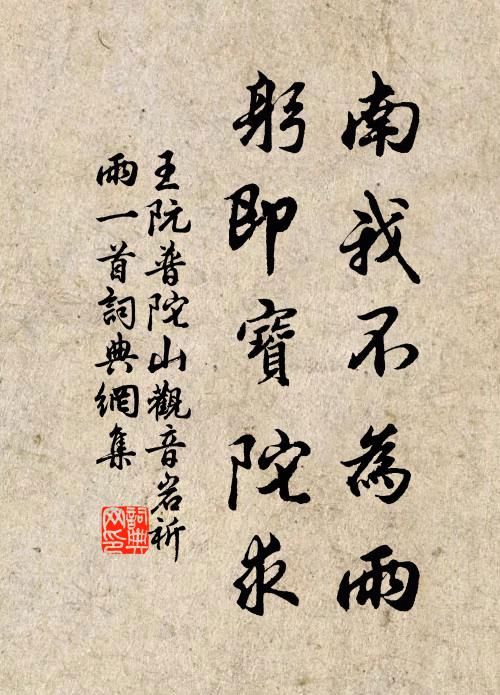 南我不為雨
躬即寶陀求
王阮普陀山觀音岩祈
雨一首詞典網集
詞典
网